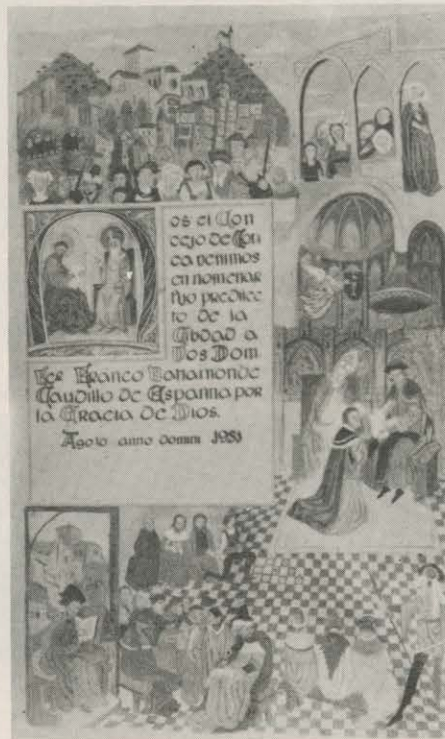 os el Con
cejo de Con
ca venimos
en nomenar
fijo predilec
to de la
Cibdad a
Vos Dom.
Franco Bahamonde
Caudillo de Espanna por
la Gracia de Dios.
Agoto anno domini 1951